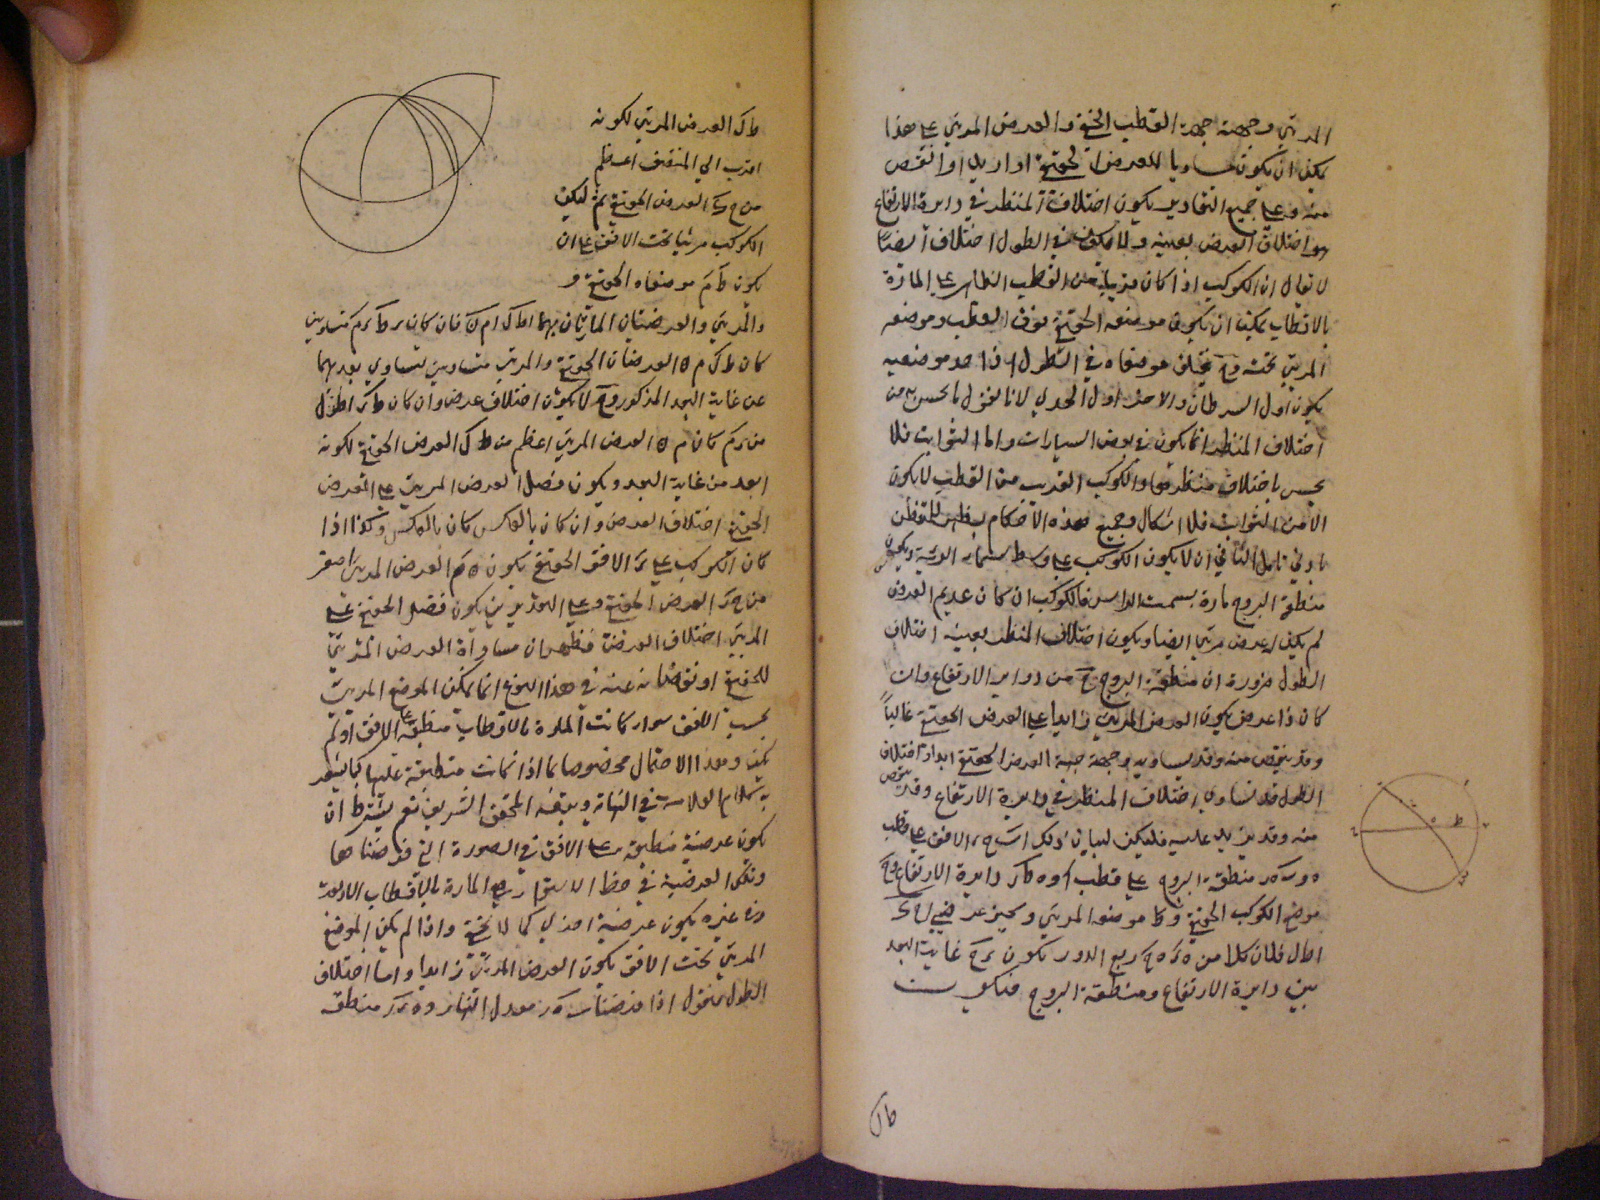 المرئي وجهته جهة القطب الخفي والعرض المرئي على هذا
يمكن ان يكون مساويا للعرض الحقيقي او ازيد او انقص
منه وعلى جميع التقادير يكون اختلاف المنظر في دايرة الارتفاع
هو اختلاف العرض بعينه ولا يكون في الطول اختلاف ايضا
لا يقال ان الكوكب اذا كان قريبا من القطب الظاهر على المارة
بالاقطاب يمكن ان يكون موضعه الحقيقي فوق القطب وموضعه
المرئي تحته وح يختلف موضعاه في الطول اذ احد موضعيه
يكون اول السرطان والاخر اول الجدي لانا نقول ما يحس به من
اختلاف المنظر انما يكون في بعض السيارات واما الثوابت فلا
يحس باختلاف منظرها والكوكب القريب من القطب لا يكون
الا من الثوابت فلا اشكال وجميع هذه الاحكام يظهر للفطن
بادنى تامل الثاني ان لا يكون الكوكب على وسط سماء الروية ويكون
منطقة البروج مارة بسمت الراس فالكوكب ان كان عديم العرض
لم يكن له عرض مرئي ايضا ويكون اختلاف المنظر بعينه اختلاف
الطول ضرورة ان منطقة البروج ح من دواير الارتفاع وان
كان ذا عرض يكون العرض المرئي زايدا على العرض الحقيقي غالبا
وقد ينقص منه وقد يساويه وجهته جهة العرض الحقيقي ابدا واختلاف
الطول قد يساوي اختلاف المنظر في دايرة الارتفاع وقد ينقص
منه وقد يزيد عليه فليكن لبيان ذلك ا ب ح ر الافق على قطب
ه و ب ه ر منطقة البروج على قطب ا و ه ط ك دايرة الارتفاع و ح
موضع الكوكب الحقيقي و ط موضعه المرئي و نجيز عرضيتي ا ح ى
ا ط ل فلان كلا من ه ر ه ح ربع الدور يكون ر ح غاية البعد
بين دايرة الارتفاع ومنطقة البروج فيكون
ط ل
ط ل العرض المرئي لكونه
اقرب الى المنتصف اعظم
من ح ى العرض الحقيقي ثم ليكن
الكوكب مرئيا تحت الافق على ان
يكون ط م موضعاه الحقيقي و
والمرئي والعرضيتان المارتان بهما ا ط ل ا م ن فان كان ر ط ر م متساويين
كان ط ل م ن العرضان الحقيقي والمرئي متساويين لتساوي بعدهما
عن غاية البعد المذكور وح لا يكون اختلاف عرض وان كان ط ر اطول
من ر م كان م ن العرض المرئي اعظم من ط ل العرض الحقيقي لكونه
ابعد من غاية البعد ويكون فضل العرض المرئي على العرض
الحقيقي اختلاف العرض وان كان بالعكس كان بالعكس وكذا اذا
كان الكوكب على ر الافق الحقيقي يكون ن م العرض المرئي اصغر
من ح ر العرض الحقيقي وعلى التقديرين يكون فضل الحقيقي على
المرئي اختلاف العرض فظهر ان مساواة العرض المرئي
للحقيقي او نقصانه عنه في هذا النوع انما يمكن الموضع المرئي
بحسب الافق سواء كانت المارة بالاقطاب منطبقة على الافق او لم
يكن وهذا الاحتمال مخصوصا بما اذا كانت منطبقة عليها كما يشعر
به كلام العلامة في النهاية وتبعه المحقق الشريف نعم يشترط ان
يكون عرضية منطبقة على الافق في الصورة التي فرضناها
وتلك العرضية في خط الاستواء هي المارة بالاقطاب الاربعة
وفي غيره يكون عرضية اخرى كما لا يخفى واذا لم يكن الموضع
المرئي تحت الافق يكون العرض المرئي زايدا واما اختلاف
الطول فنقول اذا فرضنا ب ه ر معدل النهار و ه ر ك منطقة